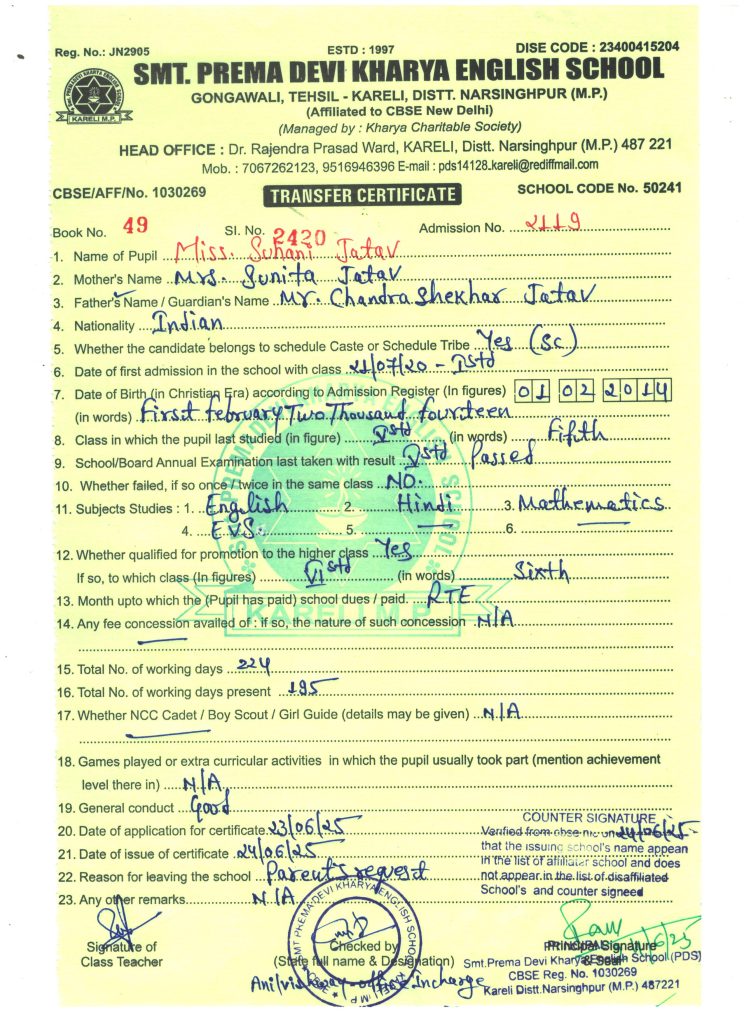 Reg. No.: JN2905 ESTD : 1997 DISE CODE : 23400415204
SMT. PREMA DEVI KHARYA ENGLISH SCHOOL
GONGAWALI, TEHSIL - KARELI, DISTT. NARSINGHPUR (M.P.)
(Affiliated to CBSE New Delhi)
(Managed by : Kharya Charitable Society)
KARELI M.P.
HEAD OFFICE : Dr. Rajendra Prasad Ward, KARELI, Distt. Narsinghpur (M.P.) 487 221
Mob. : 7067262123, 9516946396 E-mail : pds14128.kareli@rediffmail.com
CBSE/AFF/No. 1030269 TRANSFER CERTIFICATE SCHOOL CODE No. 50241
Book No. 49 Sl. No. 2420 Admission No. 2119
1. Name of Pupil Miss. Suhani Jatav
2. Mother's Name Mrs. Sunita Jatav
3. Father's Name / Guardian's Name Mr. Chandra Shekhar Jatav
4. Nationality Indian
5. Whether the candidate belongs to schedule Caste or Schedule Tribe Yes (SC)
6. Date of first admission in the school with class 21/07/20 - Istd
7. Date of Birth (in Christian Era) according to Admission Register (In figures) 01 02 2014
(in words) First february Two Thousand fourteen
8. Class in which the pupil last studied (in figure) Vstd (in words) Fifth
9. School/Board Annual Examination last taken with result Vstd Passed
10. Whether failed, if so once / twice in the same class NO.
11. Subjects Studies : 1. English 2. Hindi 3. Mathematics
4. E.V.S. 5. 6.
12. Whether qualified for promotion to the higher class Yes
If so, to which class (In figures) VIstd (in words) Sixth
13. Month upto which the (Pupil has paid) school dues / paid RTE
14. Any fee concession availed of : if so, the nature of such concession N/A
15. Total No. of working days 224
16. Total No. of working days present 195
17. Whether NCC Cadet / Boy Scout / Girl Guide (details may be given) N/A
18. Games played or extra curricular activities in which the pupil usually took part (mention achievement
level there in) N/A
19. General conduct Good
20. Date of application for certificate 23/06/25
21. Date of issue of certificate 24/06/25
22. Reason for leaving the school Parent's request
23. Any other remarks N/A
COUNTER SIGNATURE
Verified from on 24/06/25
that the issuing school's name appear
in the list of school and does
not appear in the list of disaffiliated
School's and counter signeed
SMT PREMA DEVI KHARYA ENGLISH SCHOOL KARELI M.P. CBSE
Signature of
Class Teacher
Checked by
(State full name & Designation)
office Incharge
Principal Signature
& Seal
PRINCIPAL
Smt.Prema Devi Kharya English School (PDS)
CBSE Reg. No. 1030269
Kareli Distt.Narsinghpur (M.P.) 487221